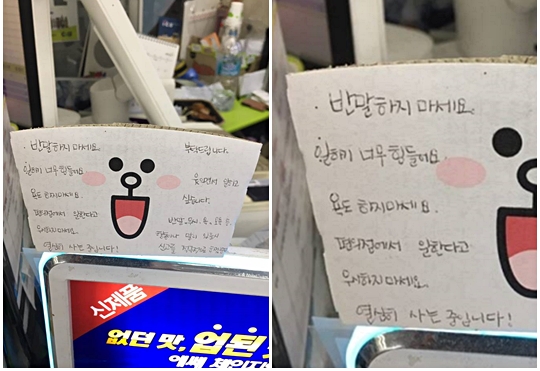 · 반말하지 마세요.
일하기 너무 힘들어요.
욕도 하지마세요.
편의점에서 일한다고
무시하지마세요.
열심히 사는 중입니다!
부탁드립니다.
웃으면서 일하고
싶습니다.
신제품
없던 맛, 업된
· 반말하지 마세요.
일하기 너무 힘들어요.
욕도 하지마세요.
편의점에서 일한다고
무시하지마세요.
열심히 사는 중입니다!